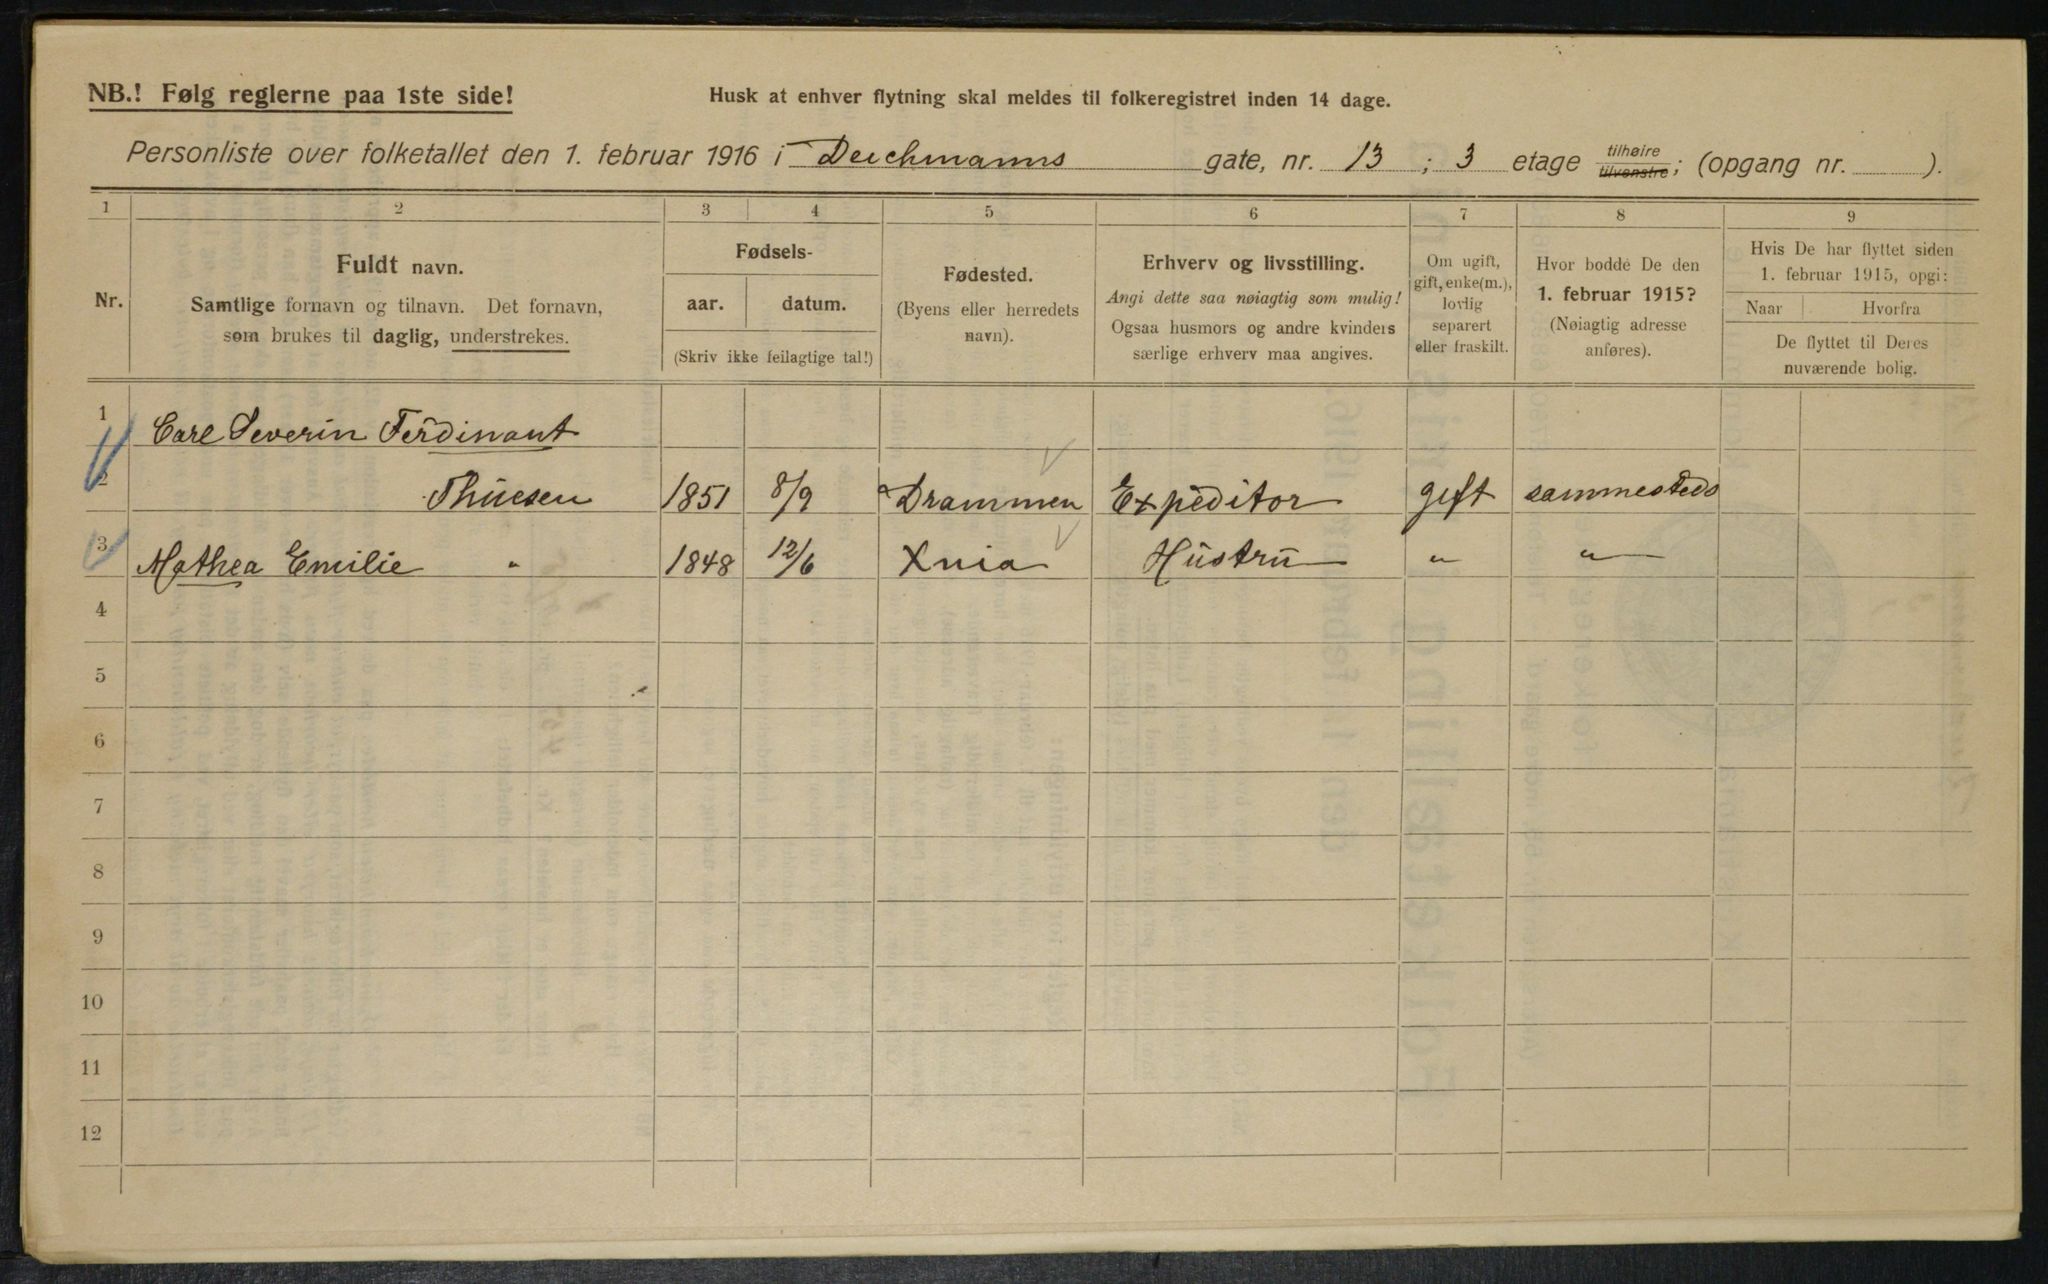 NB.! Følg reglerne paa 1ste side!
Husk at enhver flytning skal meldes til folkeregistret inden 14 dage.
Personliste over folketallet den 1. februar 1916 i Deichmanns gate, nr. 13 ; 3 etage tilhøire tilvenstre; (opgang nr. ).
1 2 3 4 5 6 7 8 9
Nr.
Fuldt navn.
Samtlige fornavn og tilnavn. Det fornavn,
som brukes til daglig, understrekes.
Fødsels-
aar. datum.
(Skriv ikke feilagtige tal!)
Fødested.
(Byens eller herredets
navn).
Erhverv og livsstilling.
Angi dette saa nøiagtig som mulig!
Ogsaa husmors og andre kvinders
særlige erhverv maa angives.
Om ugift,
gift, enke(m.),
lovlig
separert
eller fraskilt.
Hvor bodde De den
1. februar 1915?
(Nøiagtig adresse
anføres).
Hvis De har flyttet siden
1. februar 1915, opgi:
Naar Hvorfra
De flyttet til Deres
nuværende bolig.
1 Carl Severin Ferdinant
2 Thuesen 1851 8/9 Drammen Expeditor gift sammesteds
3 Mathea Emilie " 1848 12/6 Xnia Hustru " "
4
5
6
7
8
9
10
11
12